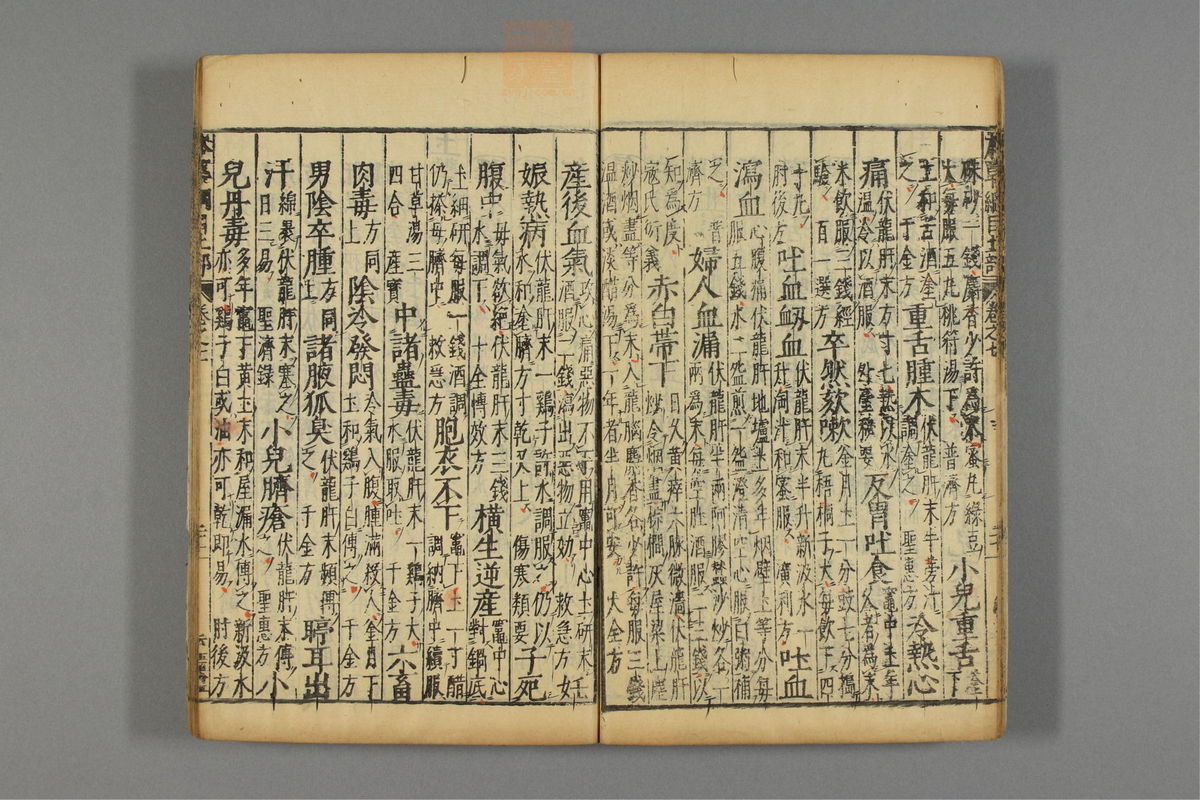 硃砂一錢麝香少許爲末蜜丸綠豆
大每服五丸桃符湯下 普濟方
小兒重舌 下釜
土和苦酒塗
之 千金方
重舌腫木 伏龍肝末牛蒡汁
調塗之 聖惠方
冷熱心
痛 伏龍肝末方寸匕熱以水
溫冷以酒服 外臺秘要
反胃吐食 竈中土年
久者爲末
米飲服三錢經
驗 百一選方
卒然欬嗽 釜月土一分豉七分搗
丸梧桐子大每飲下四
十丸
肘後方
吐血衂血 伏龍肝末半升新汲水
一升淘汁和蜜服 廣利方
吐血
瀉血 心腹痛伏龍肝地壚土多年烟壁土等分每
服五錢水二盌煎一盌澄清空心服白粥補
之 普
濟方
婦人血漏 伏龍肝半兩阿膠蠶沙炒各一
兩爲末每空肚酒服二三錢以
知爲度
寇氏衍義
赤白帶下 日久黃瘁六脉微濇伏龍肝
炒令烟盡棕櫚灰屋梁上塵
炒烟盡等分爲末入龍腦麝香各少許每服三錢
溫酒或淡醋湯下一年者半月可安 大全方
產後血氣 攻心痛惡物不下用竈中心土研末
酒服二錢瀉出惡物立効 救急方
妊
娠熱病 伏龍肝末一鷄子許水調服之仍以
水和塗臍方寸乾又上 傷寒類要
子死
腹中 母氣欲絶伏龍肝末三錢
水調下 十全博效方
橫生逆產 竈中心
對鍋底
土細研每服一錢酒調
仍搽母臍中 救急方
胞衣不下 竈下土一寸醋
調納臍中續服
甘草湯三
四合 產寶
中諸蠱毒 伏龍肝末一鷄子大
水服取吐 千金方
六畜
肉毒 方同
上
陰冷發悶 冷氣入腹腫滿殺人釜月下
土和鷄子白傅之 千金方
男陰卒腫 方同
上
諸腋狐臭 伏龍肝末頻傅
之 千金方
聤耳出
汁 綿裹伏龍肝末塞之
日三易 聖濟錄
小兒臍瘡 伏龍肝末傅
之 聖惠方
小
兒丹毒 多年竈下黃土末和屋漏水傅之新汲水
亦可鷄子白或油亦可乾即易 肘後方